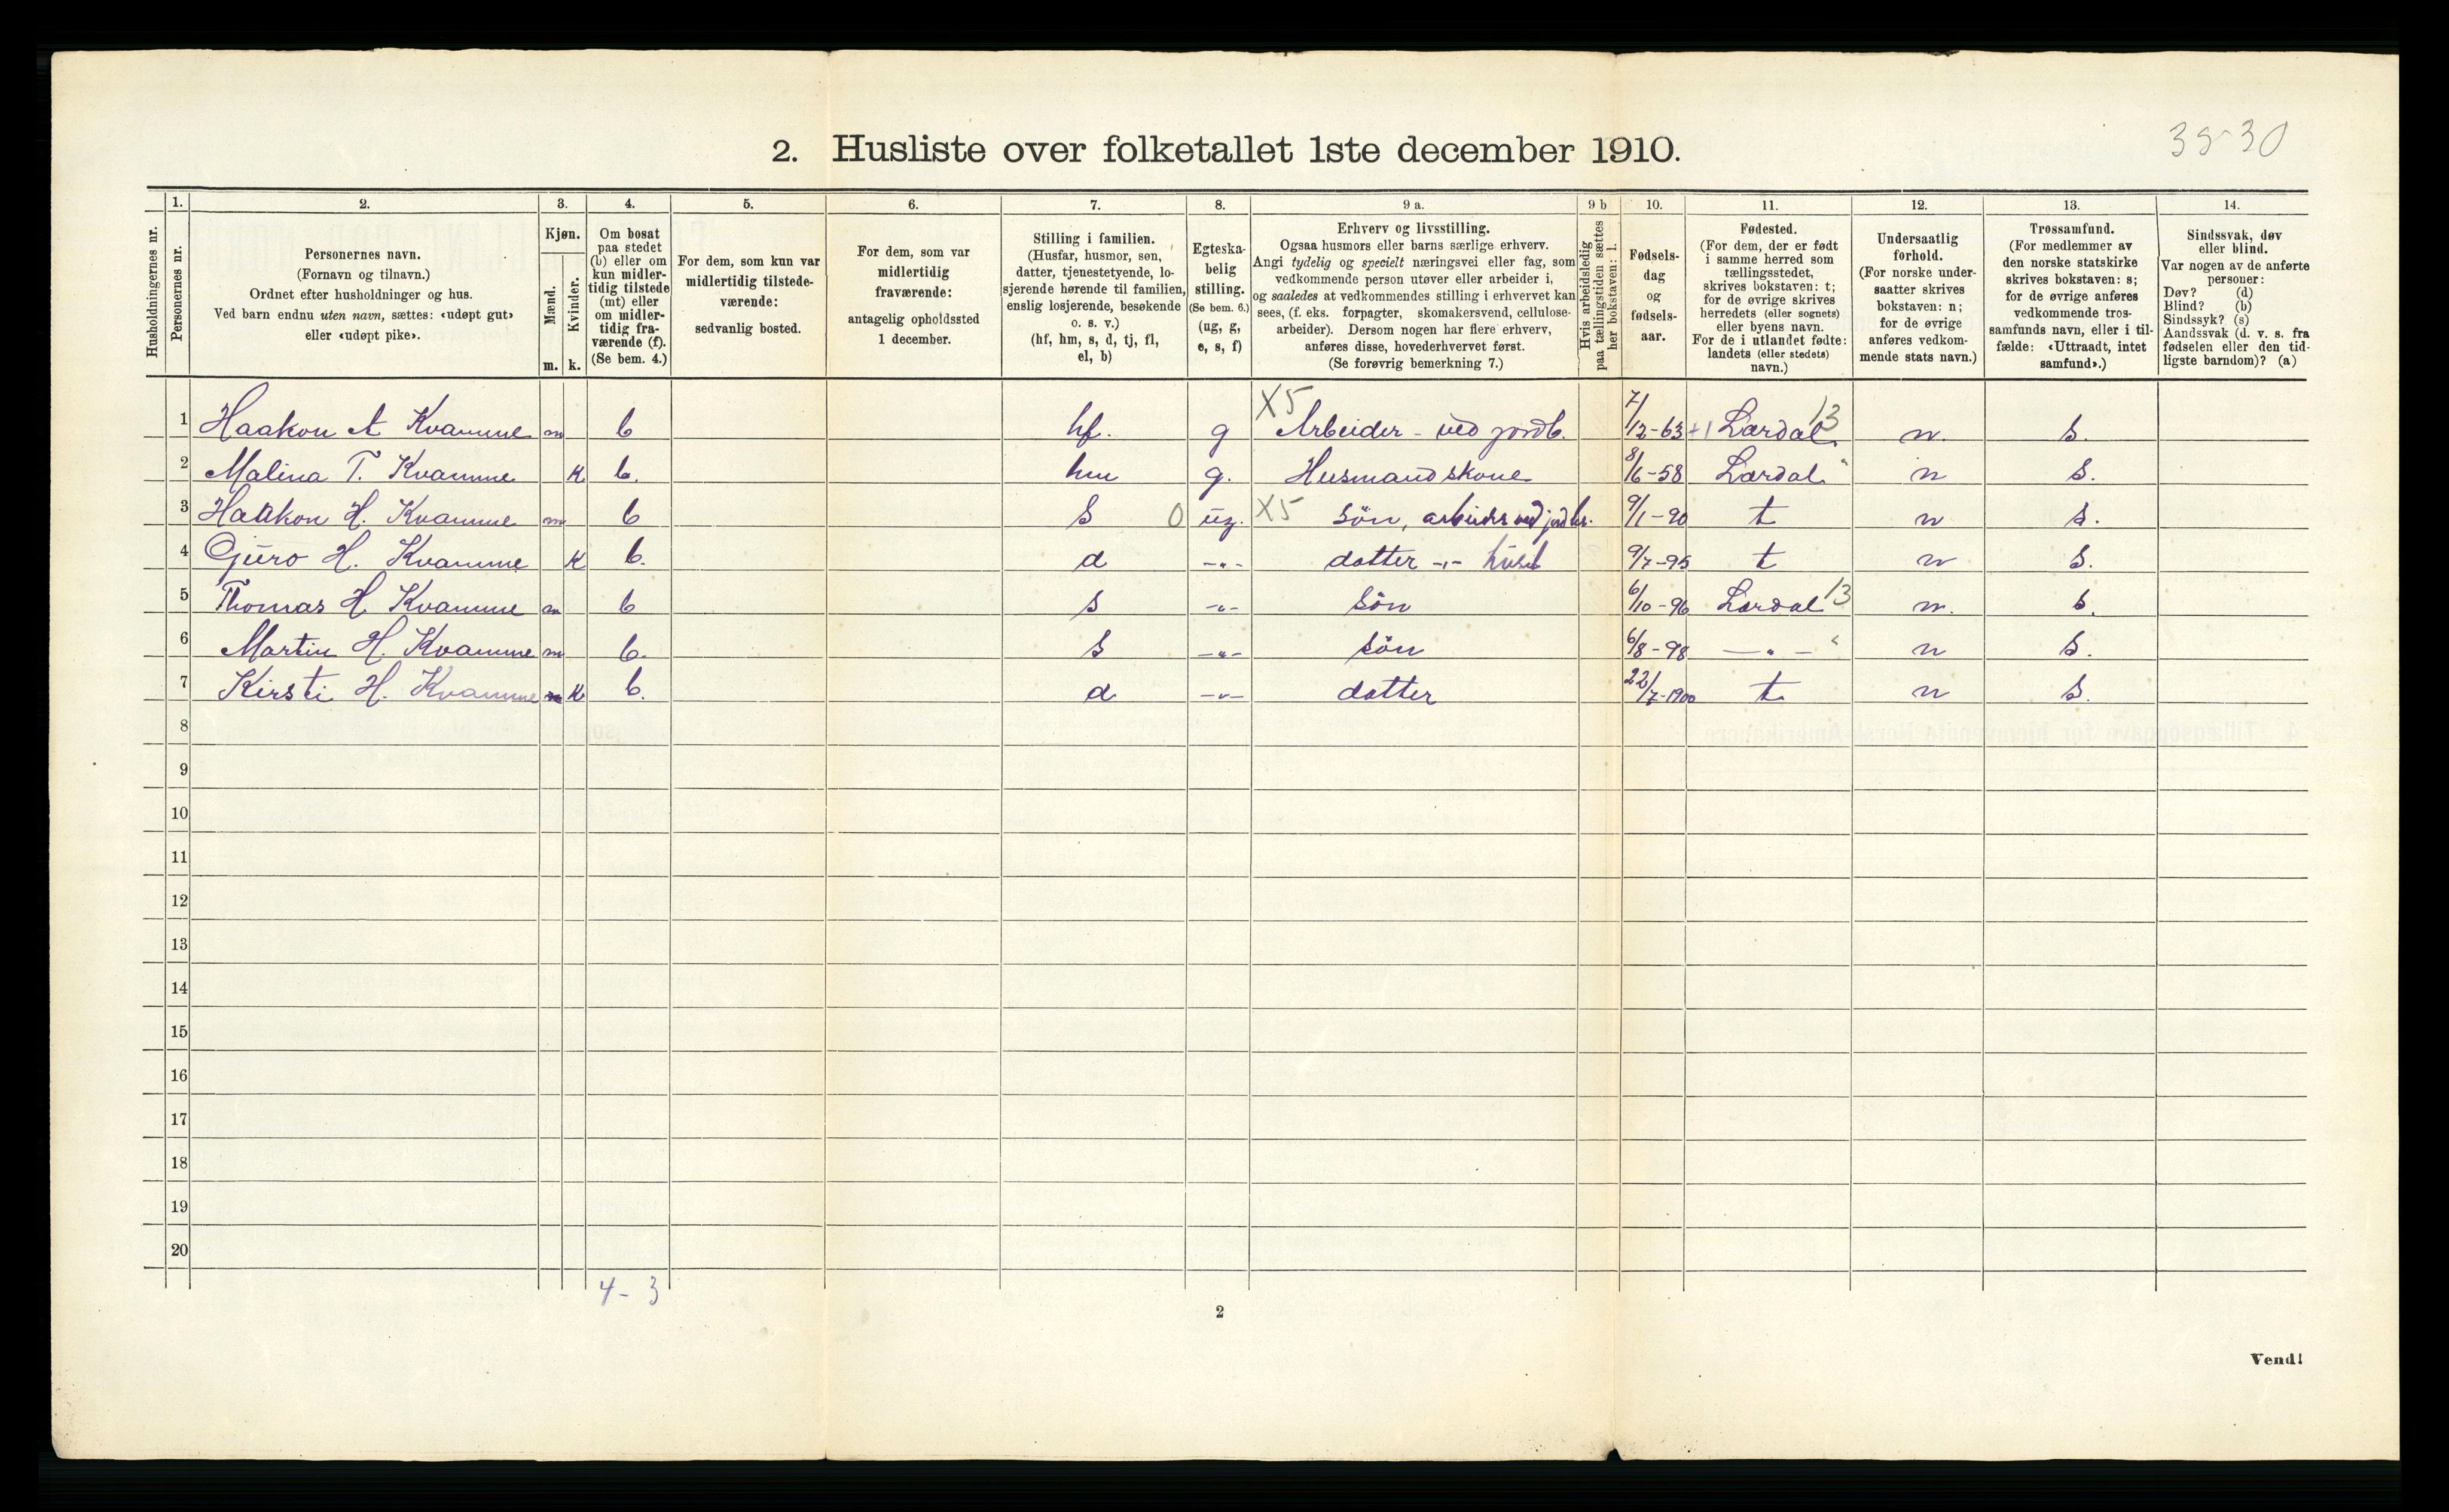 2. Husliste over folketallet 1ste december 1910.
35-30
Husholdningernes nr.
1.
Personernes nr.
2.
Personernes navn.
(Fornavn og tilnavn.)
Ordnet efter husholdninger og hus.
Ved barn endnu uten navn, sættes: «udøpt gut»
eller «udøpt pike».
3.
Kjøn.
Mænd.
Kvinder.
m. k.
4.
Om bosat
paa stedet
(b) eller om
kun midler-
tidig tilstede
(mt) eller
om midler-
tidig fra-
værende (f).
(Se bem. 4.)
5.
For dem, som kun var
midlertidig tilstede-
værende:
sedvanlig bosted.
6.
For dem, som var
midlertidig
fraværende:
antagelig opholdssted
1 december.
7.
Stilling i familien.
(Husfar, husmor, søn,
datter, tjenestetyende, lo-
sjerende hørende til familien,
enslig losjerende, besøkende
o. s. v.)
(hf, hm, s, d, tj, fl,
el, b)
8.
Egteska-
belig
stilling.
(Se bem. 6.)
(ug, g,
e, s, f)
9 a.
Erhverv og livsstilling.
Ogsaa husmors eller barns særlige erhverv.
Angi tydelig og specielt næringsvei eller fag, som
vedkommende person utøver eller arbeider i,
og saaledes at vedkommendes stilling i erhvervet kan
sees, (f. eks. forpagter, skomakersvend, cellulose-
arbeider). Dersom nogen har flere erhverv,
anføres disse, hovederhvervet først.
(Se forøvrig bemerkning 7.)
9 b
Hvis arbeidsledig
paa tællingstiden sættes
her bokstaven: l.
10.
Fødsels-
dag
og
fødsels-
aar.
11.
Fødested.
(For dem, der er født
i samme herred som
tællingsstedet,
skrives bokstaven: t;
for de øvrige skrives
herredets (eller sognets)
eller byens navn.
For de i utlandet fødte:
landets (eller stedets)
navn.)
12.
Undersaatlig
forhold.
(For norske under-
saatter skrives
bokstaven: n;
for de øvrige
anføres vedkom-
mende stats navn.)
13.
Trossamfund.
(For medlemmer av
den norske statskirke
skrives bokstaven: s;
for de øvrige anføres
vedkommende tros-
samfunds navn, eller i til-
fælde: «Uttraadt, intet
samfund».)
14.
Sindssvak, døv
eller blind.
Var nogen av de anførte
personer:
Døv? (d)
Blind? (b)
Sindssyk? (s)
Aandssvak (d. v. s. fra
fødselen eller den tid-
ligste barndom)? (a)
1 Haakon A Kvamme m b hf. g X5 Arbeider - ved jordb. 7/12-63 +1 Lærdal 13 n. s.
2 Malina T. Kvamme k b. hm g. Husmandskone 8/6-58 Lærdal " n s.
3 Haakon H. Kvamme m b s 0 ug. X5 søn, arbeider ved jordbr. 9/1-90 t n s.
4 Guro H. Kvamme k b. d -"- datter -"- huset 9/7-95 t n s.
5 Thomas H Kvamme m b s -"- søn 6/10-96 Lærdal 13 n. s.
6 Martin H. Kvamme m b. s -"- søn 6/8-98 -"- " n s.
7 Kirsti H. Kvamme k b. d -"- datter 22/7-1900 t n s.
8
9
10
11
12
13
14
15
16
17
18
19
20
4 - 3
2
Vend!